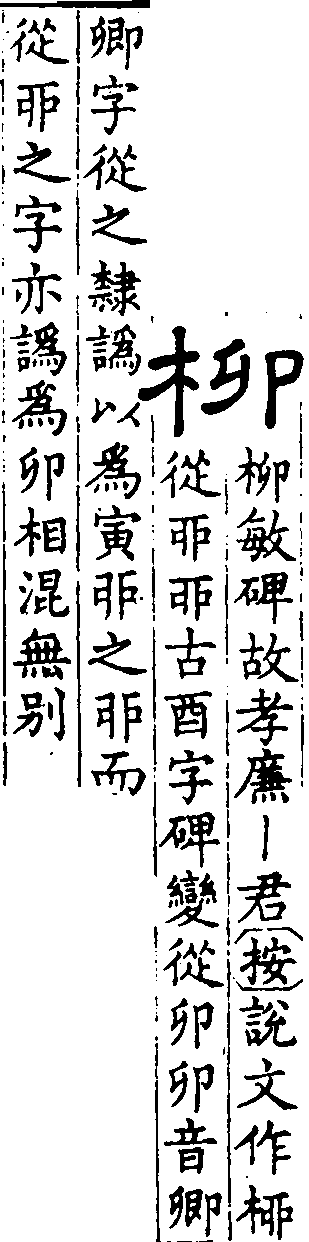 柳
柳敏碑故孝廉丨君按說文作桺
從丣丣古酉字碑變從卯卯音卿
卿字從之隸譌以爲寅丣之丣而
從丣之字亦譌爲卯相混無别